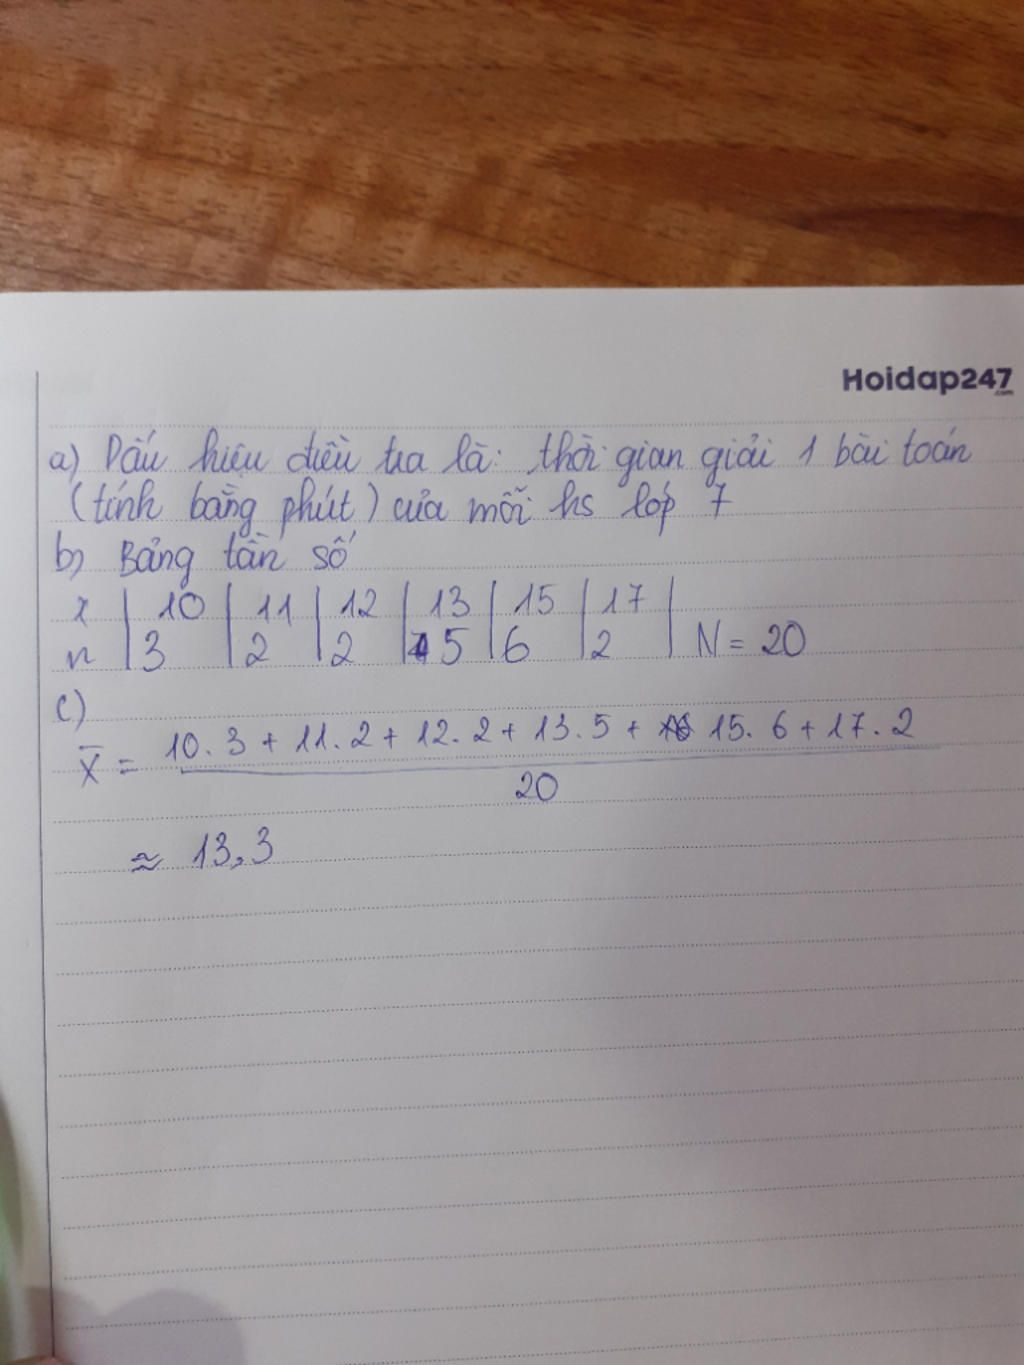 Hoidap247
.com
a) Dấu hiệu điều tra là: thời gian giải 1 bài toán
(tính bằng phút) của mỗi hs lớp 7
b) Bảng tần số
x | 10 | 11 | 12 | 13 | 15 | 17 |
n | 3 | 2 | 2 | 5 | 6 | 2 | N = 20
c)
X̄ = 10.3 + 11.2 + 12.2 + 13.5 + 15.6 + 17.2
20
≈ 13,3